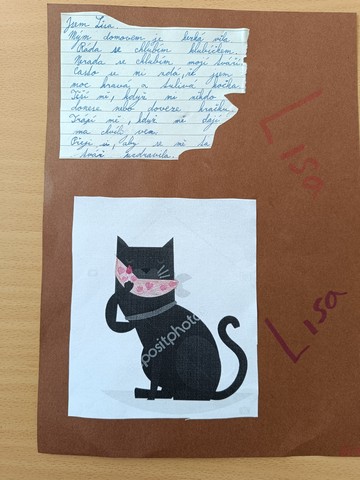 Jsem Lisa.
Mým domovem je hezká vila
Ráda se chlubím klubíčkem.
Nerada se chlubím mojí tváří.
Často se mi zdá, že jsem
moc hravá a tulivá kočka.
Těší mě, když mi někdo
donese nebo doveze hračku.
Trápí mě, když mě dají
na chvíli ven.
Přeji si, aby se mi ta
tvář uzdravila.
Lisa
Lisa
positphotos